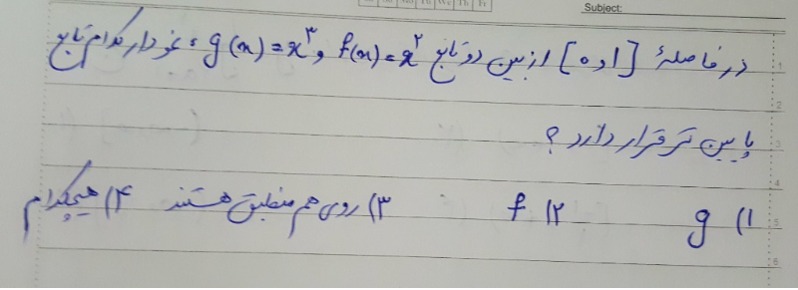 Subject:
در فاصلهٔ [۰ و ۱] از بین دو تابع f(x)=x² و g(x)=x³، نمودار کدام تابع
پایین تر قرار دارد؟
۱) g ۲) f ۳) روی هم منطبق هستند ۴) هیچکدام